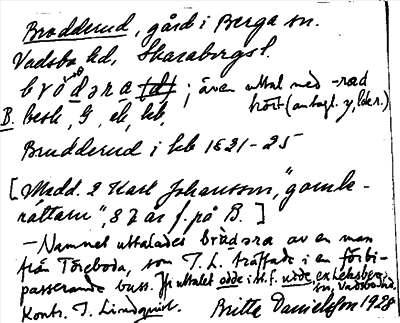 Brodderud, gård i Berga sn.
Vadsbo hd, Skaraborgs l.
bródəra ; även uttal med -rəd
hört (antagl. y, lok r.)
B. besk, G, ek, kb,
Brudderud i kb 1821-25
[Medd. 2 Karl Johansson, "gamle-
rättarn", 82 år f. på B. ]
— Namnet uttalades brådəra av en man
från Töreboda, som J. L. träffade i en förbi-
passerande buss. Jfr uttalet odde i st. f. udde
sn, Vadsbo hd.
Kontr. J. Lindquist. Britte Danielsson 1928